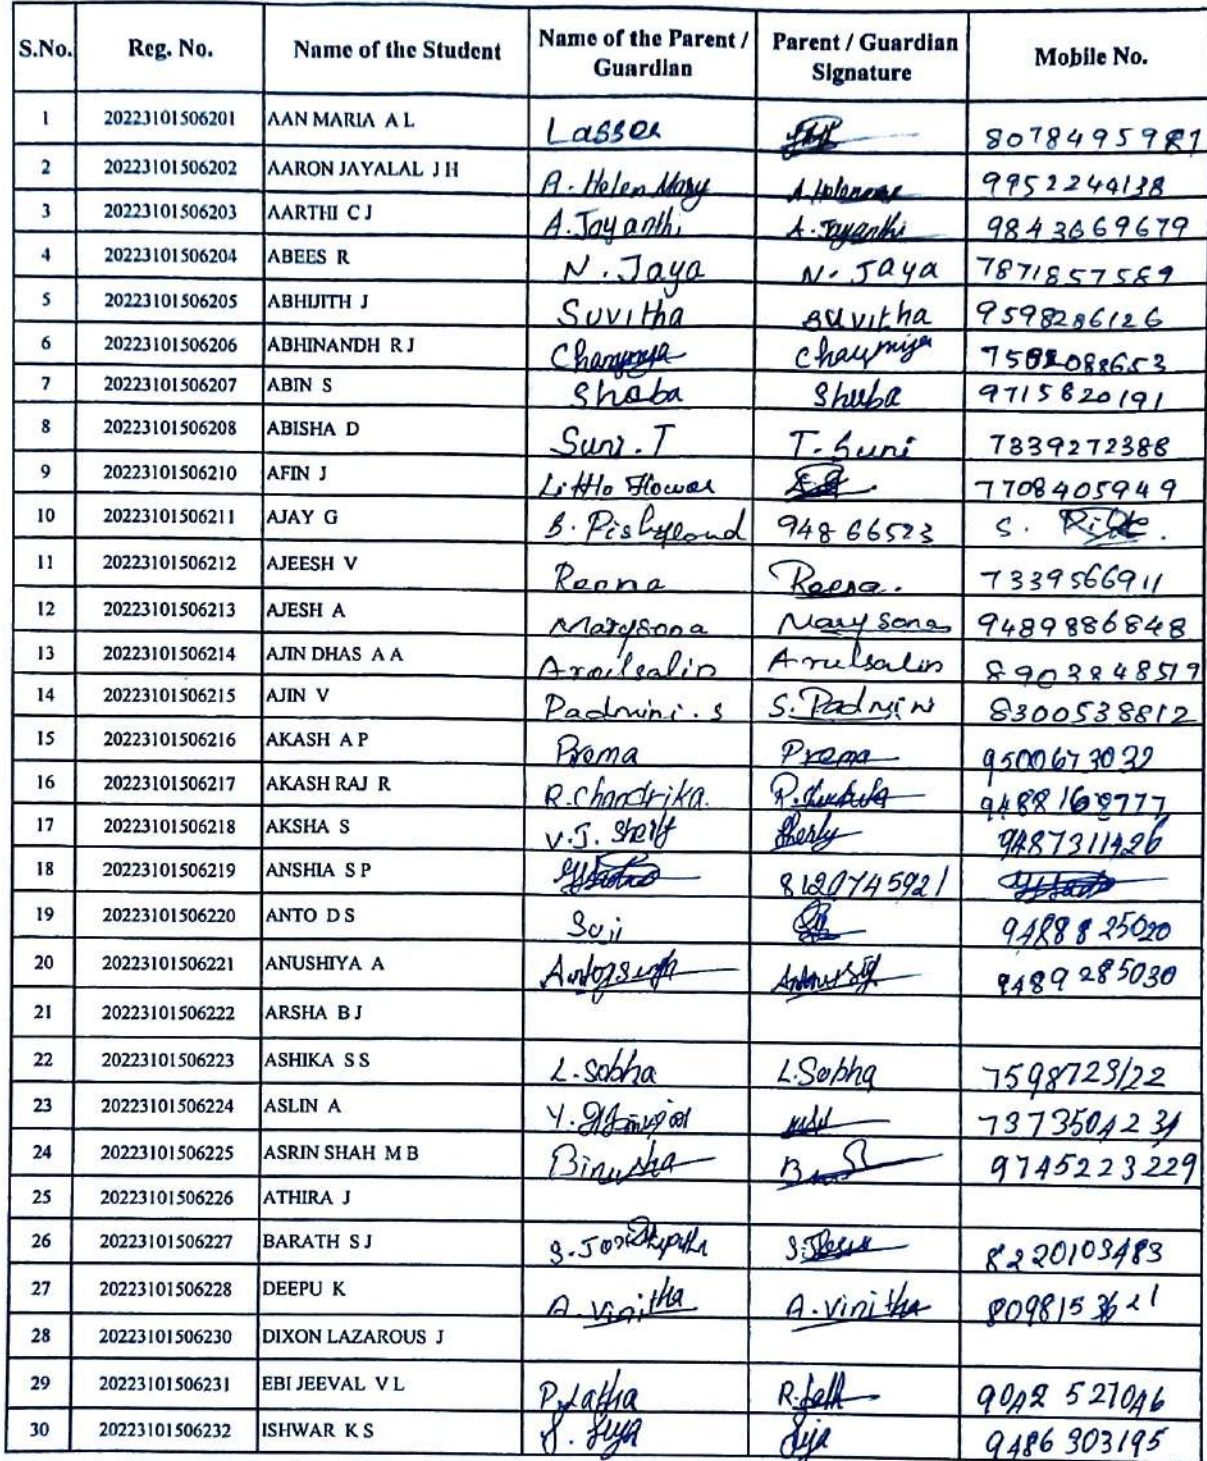 S.No. Reg. No. Name of the Student Name of the Parent / Guardian Parent / Guardian Signature Mobile No.
1 20223101506201 AAN MARIA A L Lasser 8078495987
2 20223101506202 AARON JAYALAL J H A. Helen Mary 9952244138
3 20223101506203 AARTHI C J A. Jayanthi A. Jayanthi 9843669679
4 20223101506204 ABEES R N. Jaya N. Jaya 7871857589
5 20223101506205 ABHIJITH J Suvitha suvitha 9598286126
6 20223101506206 ABHINANDH R J
7 20223101506207 ABIN S Shoba Shuba 9715820191
8 20223101506208 ABISHA D Suni. T T. Suni 7339272388
9 20223101506210 AFIN J Little Flower 7708405949
10 20223101506211 AJAY G 94866523 S.
11 20223101506212 AJEESH V Reena Reena. 7339566911
12 20223101506213 AJESH A Marysona Mary Sona 9489886848
13 20223101506214 AJIN DHAS A A Arulsalin Arulsalin 8903848519
14 20223101506215 AJIN V Padmini. S S. Padmini 8300538812
15 20223101506216 AKASH A P Prema Prema 9500673032
16 20223101506217 AKASH RAJ R R. Chandrika.
17 20223101506218 AKSHA S V. J. Sherly Sherly 9487311426
18 20223101506219 ANSHIA S P 8120745921
19 20223101506220 ANTO D S Suji 9488825020
20 20223101506221 ANUSHIYA A 9489285030
21 20223101506222 ARSHA B J
22 20223101506223 ASHIKA S S L. Sobha L. Sobha 7598723122
23 20223101506224 ASLIN A 7373504234
24 20223101506225 ASRIN SHAH M B Binusha 9745223229
25 20223101506226 ATHIRA J
26 20223101506227 BARATH S J 8220103483
27 20223101506228 DEEPU K A. Vinitha A. Vinitha
28 20223101506230 DIXON LAZAROUS J
29 20223101506231 EBI JEEVAL V L P. Latha 9042 527046
30 20223101506232 ISHWAR K S Sija 9486 303195